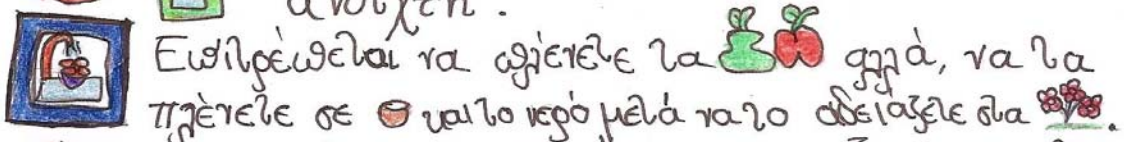 ανοιχτή.
Επιτρέπεται να πλένετε τα αλλά, να τα
πλένετε σε και το νερό μετά να το αδειάζετε στα .